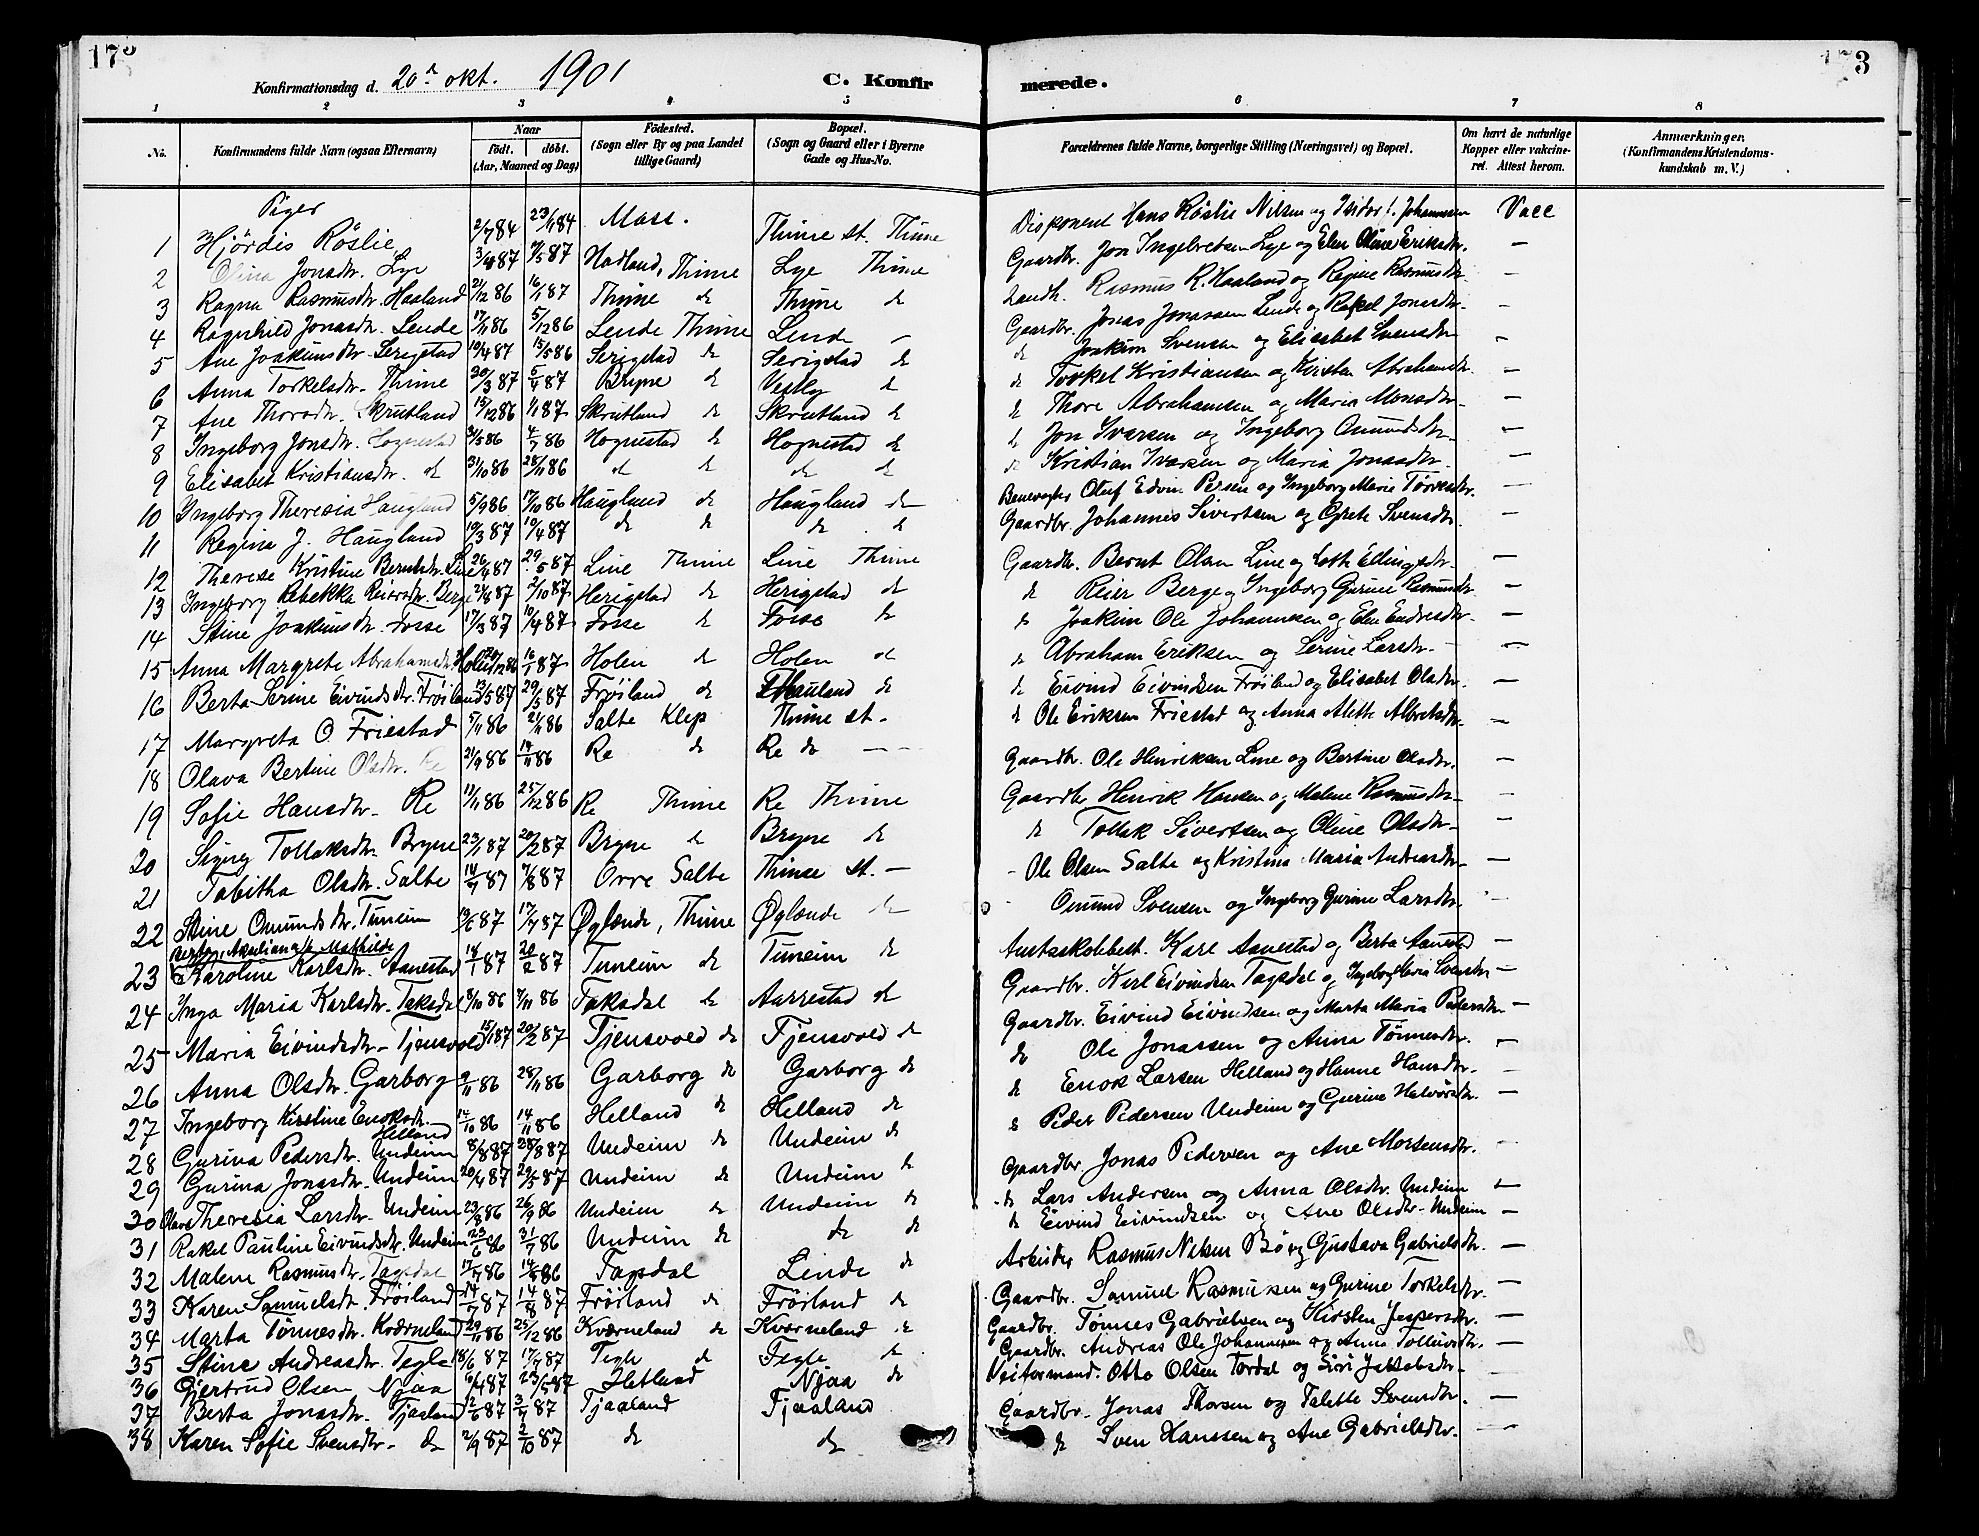 173
Konfirmationsdag d. 20de okt. 1901
C. Konfirmerede.
1 2 3 4 5 6 7 8
No. | Konfirmandens fulde Navn (ogsaa Efternavn) | Naar födt. döbt. (Aar, Maaned og Dag) | Födested. (Sogn eller By og paa Landet tillige Gaard) | Bopæl. (Sogn og Gaard eller i Byerne Gade og Hus-No. | Forældrenes fulde Navne, borgerlige Stilling (Næringsvei) og Bopæl. | Om havt de naturlige Kopper eller vakcineret. Attest herom. | Anmærkninger, (Konfirmandens Kristendomskundskab m. V.)
Piger
1 Hjördis Röslie 2/7 84 23/11 84 Moss. Thime st. Thime Disponent Hans Röslie Nilsen og Johannesen Vacc
2 Olina Jonsdtr. Lye 3/4 87 19/5 87 Hadland, Thime Lye Thime Gaardbr. Jon Ingebretsen Lye og Elen Oline Eriksdtr. —
3 Ragna Rasmusdtr. Haaland 21/12 86 16/1 87 Thime do Thime do Landh. Rasmus R. Haaland og Regine Rasmusdtr. —
4 Ragnhild Jonasdtr. Lende 17/11 86 5/12 86 Lende Thime Lende — Gaardbr. Jonas Jonassen Lende og Rakel Jonasdtr. —
5 Ane Joakimsdtr. Serigstad 10/4 87 15/5 86 Serigstad do Serigstad do do Joakim Svensen og Elisabet Svensdtr —
6 Anna Torkelsdtr. Thime 20/3 87 5/4 87 Bryne do Vestly do do Torkel Kristiansen og Kirsten Abrahamsdtr. —
7 Ane Thorsdtr. Skrutland 15/12 86 1/1 87 Skrutland do Skrutland do do Thore Abrahamsen og Maria Monsdtr —
8 Ingeborg Jonsdtr. Hognestad 31/5 86 4/7 86 Hognestad do Hognestad do do Jon Ivarsen og Ingeborg Omundsdtr. —
9 Elisabet Kristiansdtr. do 31/10 86 28/11 86 do do do do do Kristian Ivarsen og Maria Jonasdtr. —
10 Ingeborg Theresia Haugland 5/9 86 17/10 86 Haugland do Haugland do Banevogter Oluf Edvin Persen og Ingeborg Marie Törresdtr. —
11 Regina J. Haugland 19/3 87 10/4 87 do do do do Gaardbr. Johannes Sivertsen og Grete Svensdtr. —
12 Therese Kristine Berntsdtr. Line 26/4 87 29/5 87 Line Thime Line Thime Gaardbr. Bernt Olsen Line og Lotte Ellingsdtr —
13 Ingeborg Rebekka Reiersdtr. Berge 21/8 87 2/10 87 Herigstad do Herigstad do do Reier Berge og Ingeborg Gurine Rasmusdtr —
14 Stine Joakimsdtr. Fosse 17/3 87 10/4 87 Fosse do Fosse do do Joakim Ole Johannesen og Elen Endresdtr. —
15 Anna Margrete Abrahamsdtr. Holen 16/1 87 Holen do Holen do do Abraham Eriksen og Serine Larsdtr. —
16 Berta Serine Eivindsdtr. Fröiland 13/5 87 29/5 87 Fröiland do do do Eivind Eivindsen Fröiland og Elisabet Olsdtr. —
17 Margreta O. Friestad 5/11 86 21/11 86 Salte Klep Thime st. do Ole Eriksen Friestad og Anna Alette Albretsdtr. —
18 Olava Bertine Olsdtr. Re 21/9 86 14/11 86 Re do Re do — Gaardbr. Ole Henriksen Line og Bertine Olsdtr. —
19 Sofie Hansdtr. Re 19/11 86 25/12 86 Re Thime Re Thime Gaardbr Henrik Hansen og Malene Rasmusdtr —
20 Signy Tollaksdtr. Bryne 23/1 87 20/2 87 Bryne do Bryne do do Tollak Sivertsen og Oline Olsdtr —
21 Tabitha Olsdtr. Salte 14/7 87 7/8 87 Orre Salte Thime st. — - Ole Olsen Salte og Kristina Maria Andreasdtr —
22 Stine Omundsdtr. Tuneim 19/6 87 17/7 87 Øglænde, Thime Øglænde do - Omund Svensen og Ingeborg Gurine Larsdtr. -
23 Karoline Mathilde Karlsdtr. Aanestad 14/1 87 20/2 87 Tuneim do Tuneim do Karl Aanestad og Berta Aanestad —
24 Inga Maria Karlsdtr. Taksdal 8/10 86 7/11 86 Taksdal do Aarrestad do Gaardbr. Karl Eivindsen Tagsdal og Ingeborg Maria Svensdtr —
25 Maria Eivindsdtr. Tjensvold 15/1 87 20/2 87 Tjensvold do Tjensvold do Gaardbr. Eivind Eivindsen og Marta Maria Pedersdtr —
26 Anna Olsdtr. Garborg 9/11 86 28/11 86 Garborg do Garborg do do Ole Jonassen og Anna Tönnesdtr. —
27 Ingeborg Kirstine Enoksdtr. Helland 14/10 86 14/11 86 Helland do Helland do do Enok Larsen Helland og Hanne Hansdtr. —
28 Gurina Pedersdtr. Undeim 8/8 87 28/8 87 Undeim do Undeim do do Peder Pedersen Undeim og Gurine Halvorsdtr. —
29 Gurina Jonasdtr. Undeim 20/4 87 29/5 87 Undeim do Undeim do Gaardbr Jonas Pedersen og Ane Mortensdtr. —
30 Olava Theresia Larsdtr. Undeim 23/8 86 26/9 86 Undeim do Undeim do do Lars Andersen og Anna Olsdtr. Undeim —
31 Rakel Pauline Eivindsdtr. Undeim 23/6 86 31/7 86 Undeim do do do do Eivind Eivindsen og Ane Olsdtr. Undeim —
32 Malene Rasmusdtr. Tagsdal 17/7 86 14/8 86 Tagsdal Lende do Arbeider Rasmus Nilsen Börg Gustava Gabrielsdtr. —
33 Karen Samuelsdtr. Fröiland 14/7 87 14/8 87 Fröiland do Fröiland do Gaardbr. Samuel Rasmussen og Gurine Torkelsdtr. —
34 Marta Tönnesdtr. Kværneland 29/11 86 25/12 86 Kværneland do Kværneland do Gaardbr. Tönnes Gabrielsen og Kirsten Jespersdtr. —
35 Stine Andreasdtr. Tegle 18/6 87 17/7 87 Tegle do Tegle do Gaardbr. Andreas Ole Johannesen og Anna —
36 Gjertrud Olsen Njaa 6/4 87 23/5 87 Hetland Njaa do Otto Olsen Tordal og Siri Jakobsdtr —
37 Berta Jonasdtr. Tjaaland 2/6 87 3/7 87 Tjaaland Tjaaland Gaardbr. Jonas Thorsen og Talette Svensdtr. —
38 Karen Sofie Svensdtr. do 2/9 87 2/10 87 do do do Sven Hanssen og Ane Gabrielsdtr. —